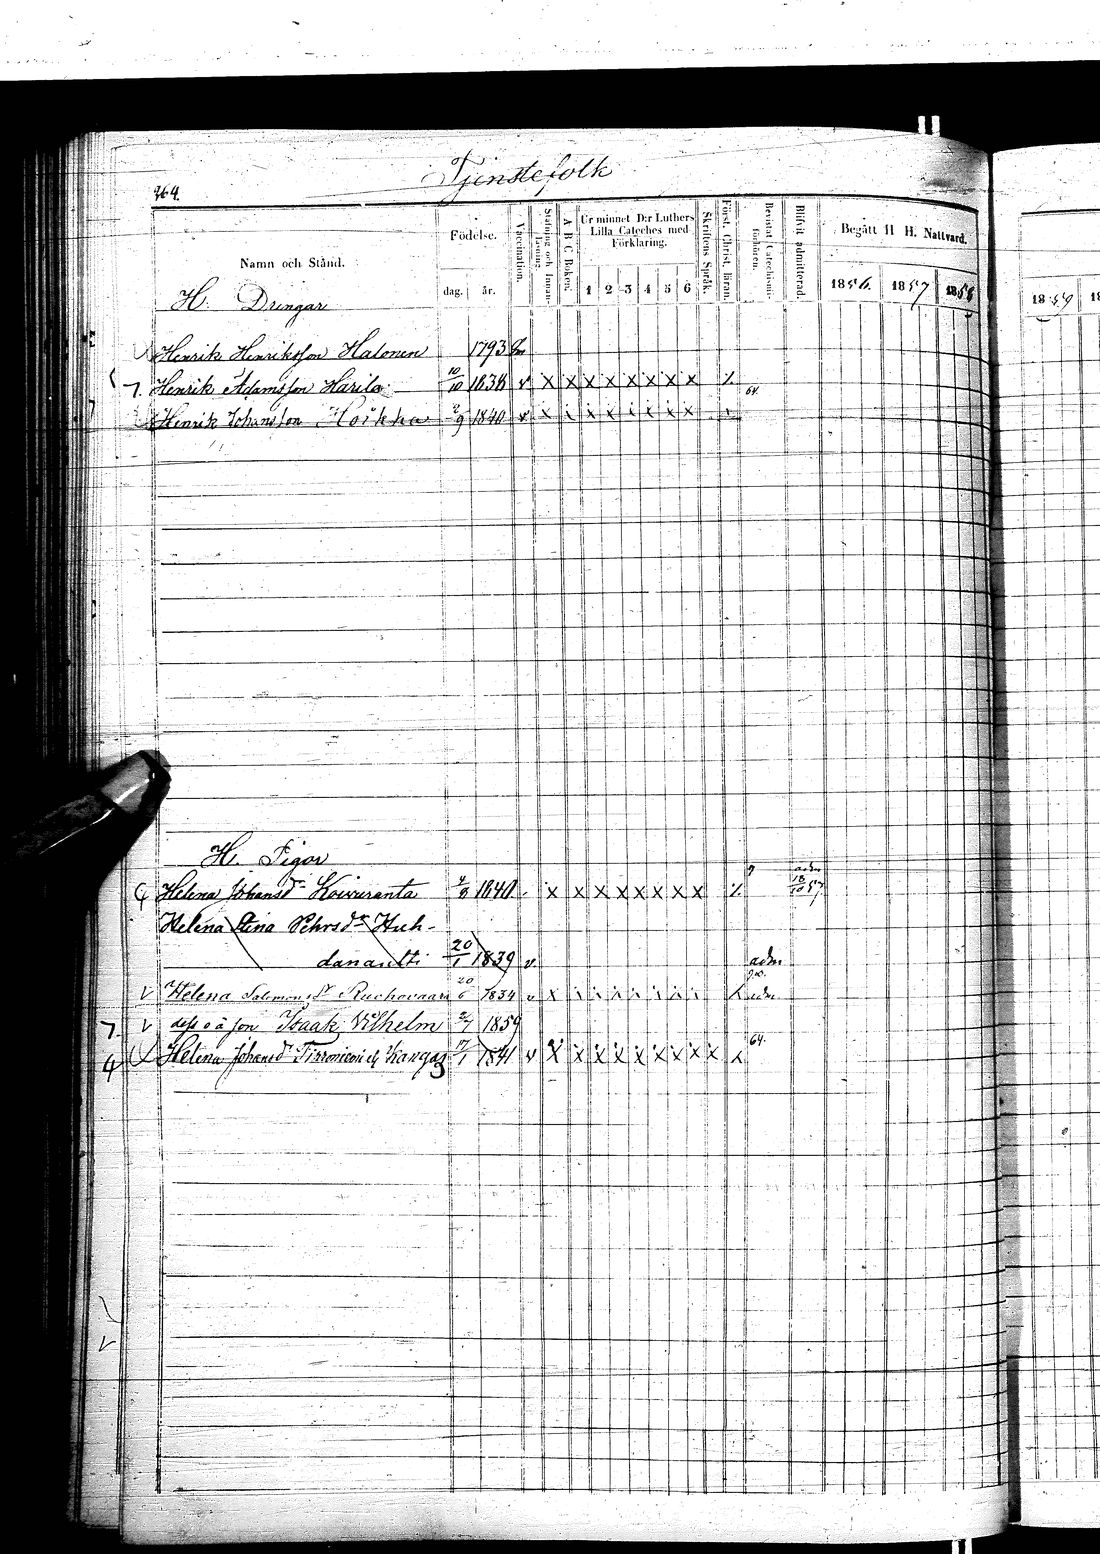 Tjenstefolk
264.
Namn och Stånd.
Födelse.
dag. år.
Vaccination.
Stafning och Innan-läsning.
A B C Boken.
Ur minnet D:r Luthers Lilla Cateches med Förklaring.
1 2 3 4 5 6
Skriftens Språk.
Först. Christ. läran.
Bevistat Catechismi-förhören.
Blifvit admitterad.
Begått H H. Nattvard.
1856. 1857 1858
1859
H. Drengar
Henrik Henriksson Halonen 1793
7. Henrik Adamsson Harila 10/10 1838 v x x x x x x x x 64.
Henrik Johansson Hoikka 2/9 1840 v x x x x x x x x
H. Pigor
Helena Johansdr Koivuranta 1840 x x x x x x x x adm 18/10 57
Helena Stina Pehrsdr Huh-
danantti 20/1 1839 v. adm
v Helena Salomonsdr Ruchovaara 20/6 1834 v x x x x x x x x adm
7. v dess o ä son Isaak Vilhelm 1859
4 Helena Johansdr Kangas 17/1 1841 v x x x x x x x x x 64.